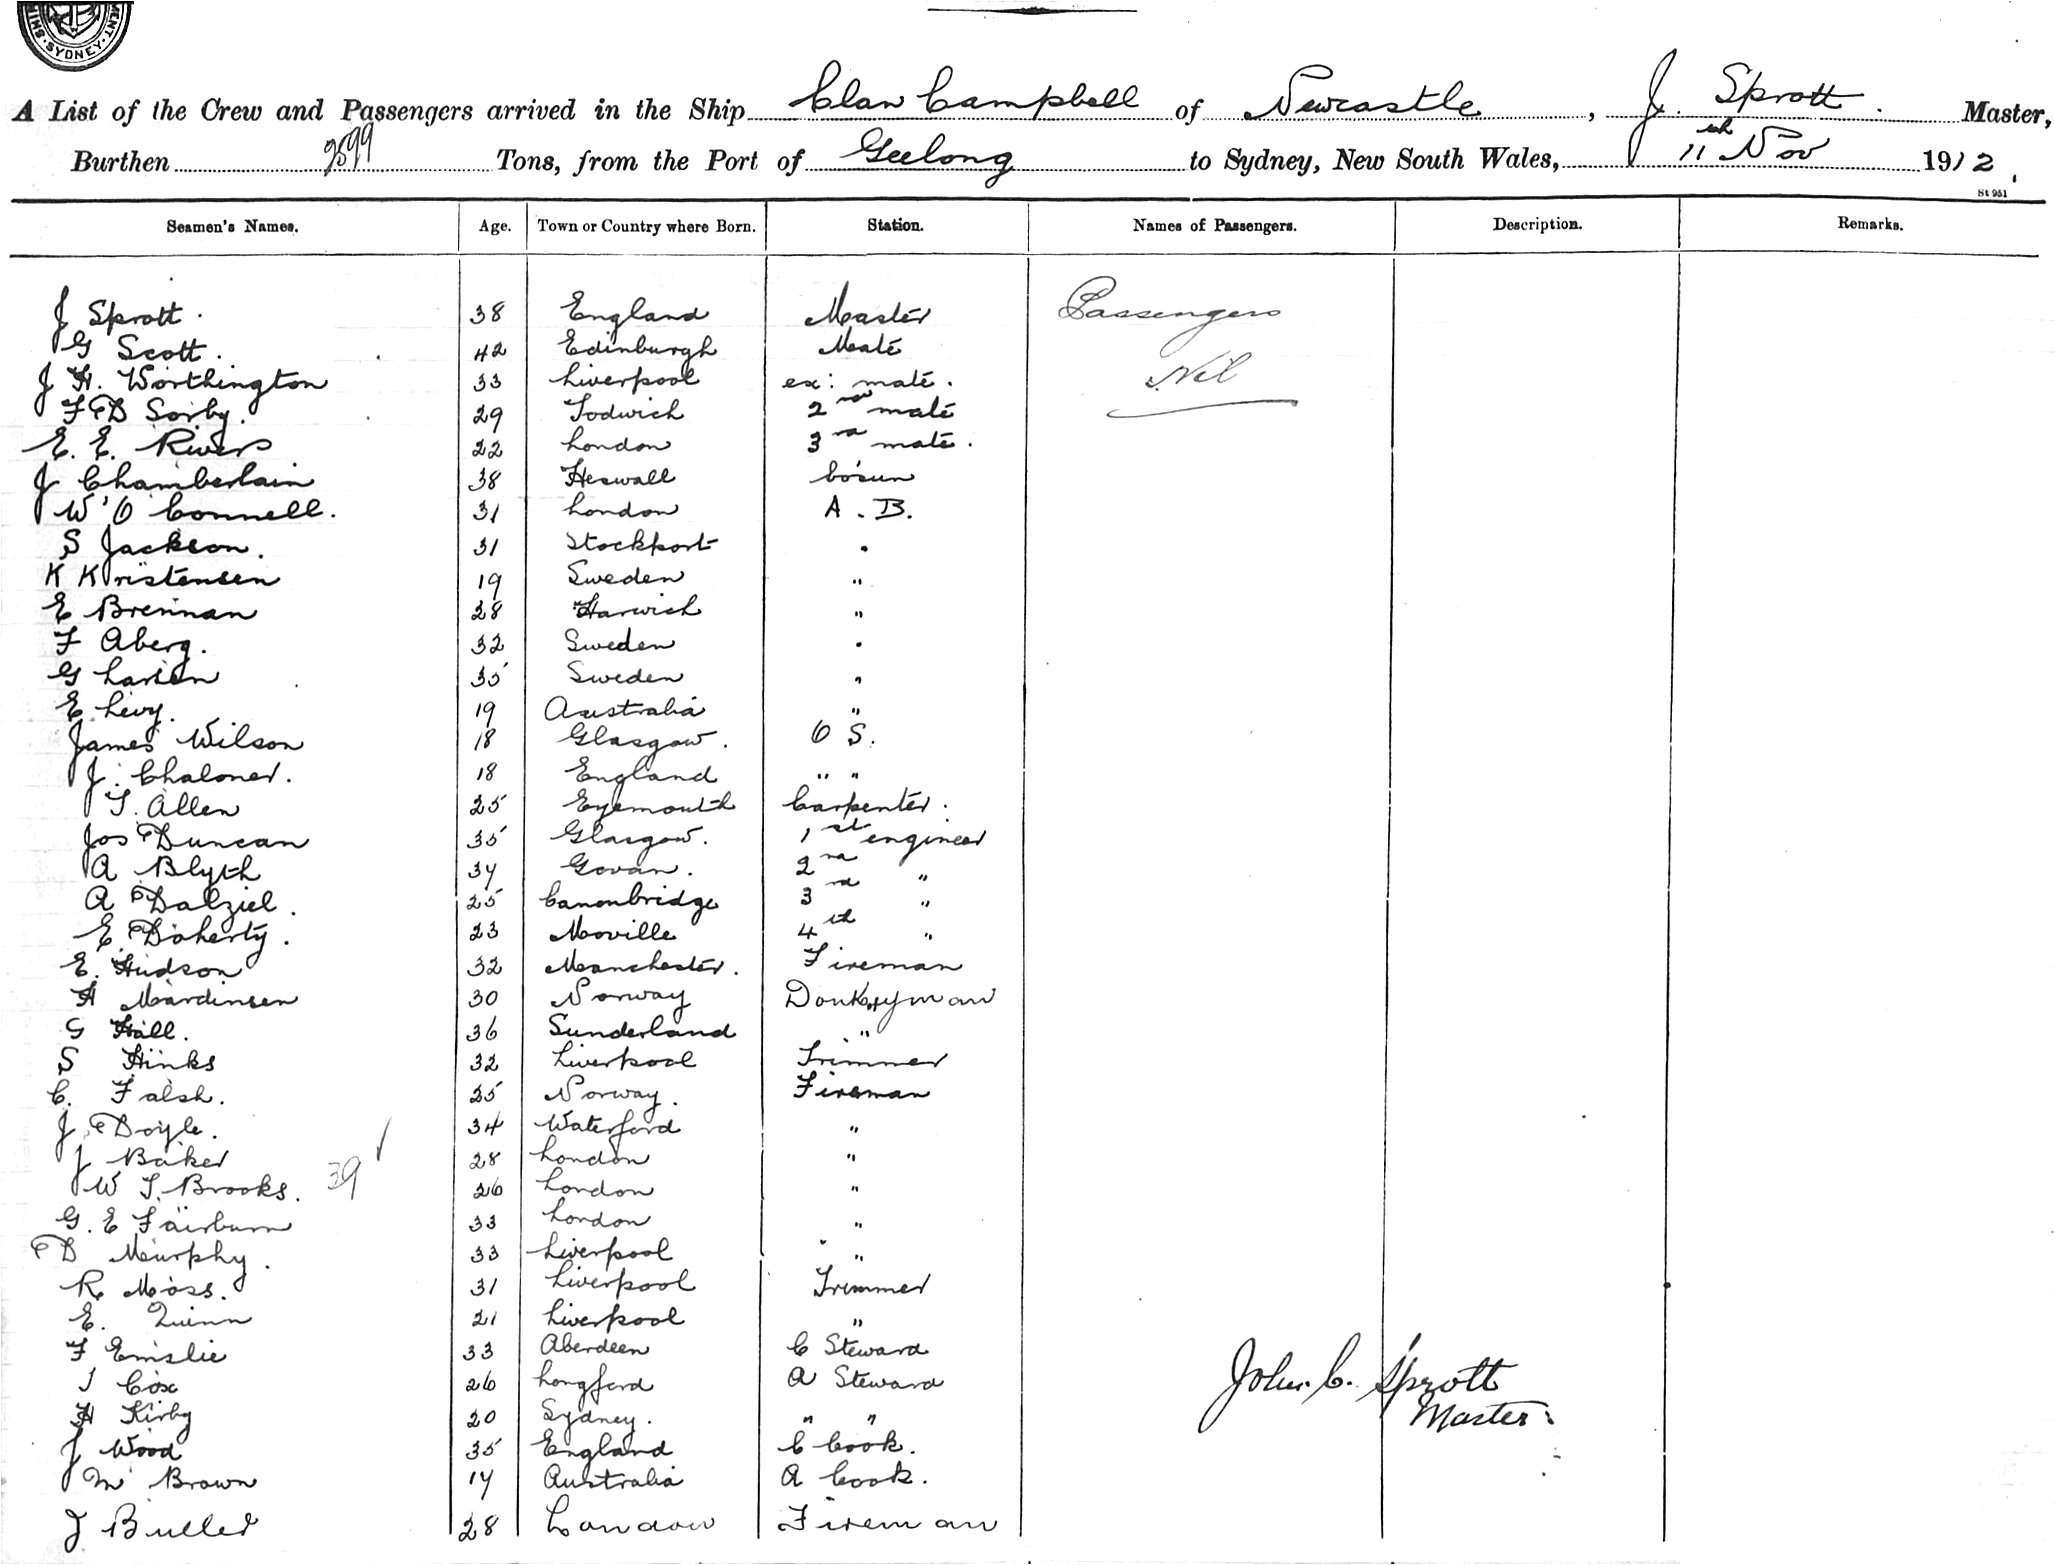 SYDNEY
A List of the Crew and Passengers arrived in the Ship Clan Campbell of Newcastle, J. Sprott. Master,
Burthen 2599 Tons, from the Port of Geelong to Sydney, New South Wales, 11th Nov 1912.
St 951
Seamen's Names. Age. Town or Country where Born. Station. Names of Passengers. Description. Remarks.
J Sprott. 38 England Master Passengers
G Scott. 42 Edinburgh Mate
J H. Worthington 33 Liverpool ex: mate. Nil
F D Sorby. 29 Todwick 2nd mate
E. E. Rivers 22 London 3rd mate.
J Chamberlain 38 Heswall bo'sun
W O'Connell. 31 London A. B.
S Jackson. 31 Stockport "
K Kristensen 19 Sweden "
E Brennan 28 Harwich "
F Aberg. 32 Sweden "
G Larsen 35 Sweden "
E Levy. 19 Australia "
James Wilson 18 Glasgow. O S.
J. Chaloner. 18 England " "
T. Allen 25 Eyemouth Carpenter.
Jos Duncan 35 Glasgow. 1st engineer
A Blyth 34 Govan. 2nd "
A Dalziel. 25 Canonbridge 3rd "
E. Doherty. 23 Moville 4th "
E. Hudson 32 Manchester. Fireman
H Mardinsen 30 Norway Donkeyman
G Hall. 36 Sunderland "
S Hinks 32 Liverpool Trimmer
C. Falsh. 25 Norway. Fireman
J Doyle. 34 Waterford "
J Baker 28 London "
W T. Brooks. 39 26 London "
G. E Fairburn 33 London "
D Murphy. 33 Liverpool "
R Moss. 31 Liverpool Trimmer
E. Quinn 21 Liverpool "
F Emslie 33 Aberdeen C Steward
J Cox 26 Longford A Steward
H Kirby 20 Sydney. " "
J Wood 35 England C Cook.
M Brown 17 Australia A Cook.
J Buller 28 London Fireman
John C. Sprott
Master.